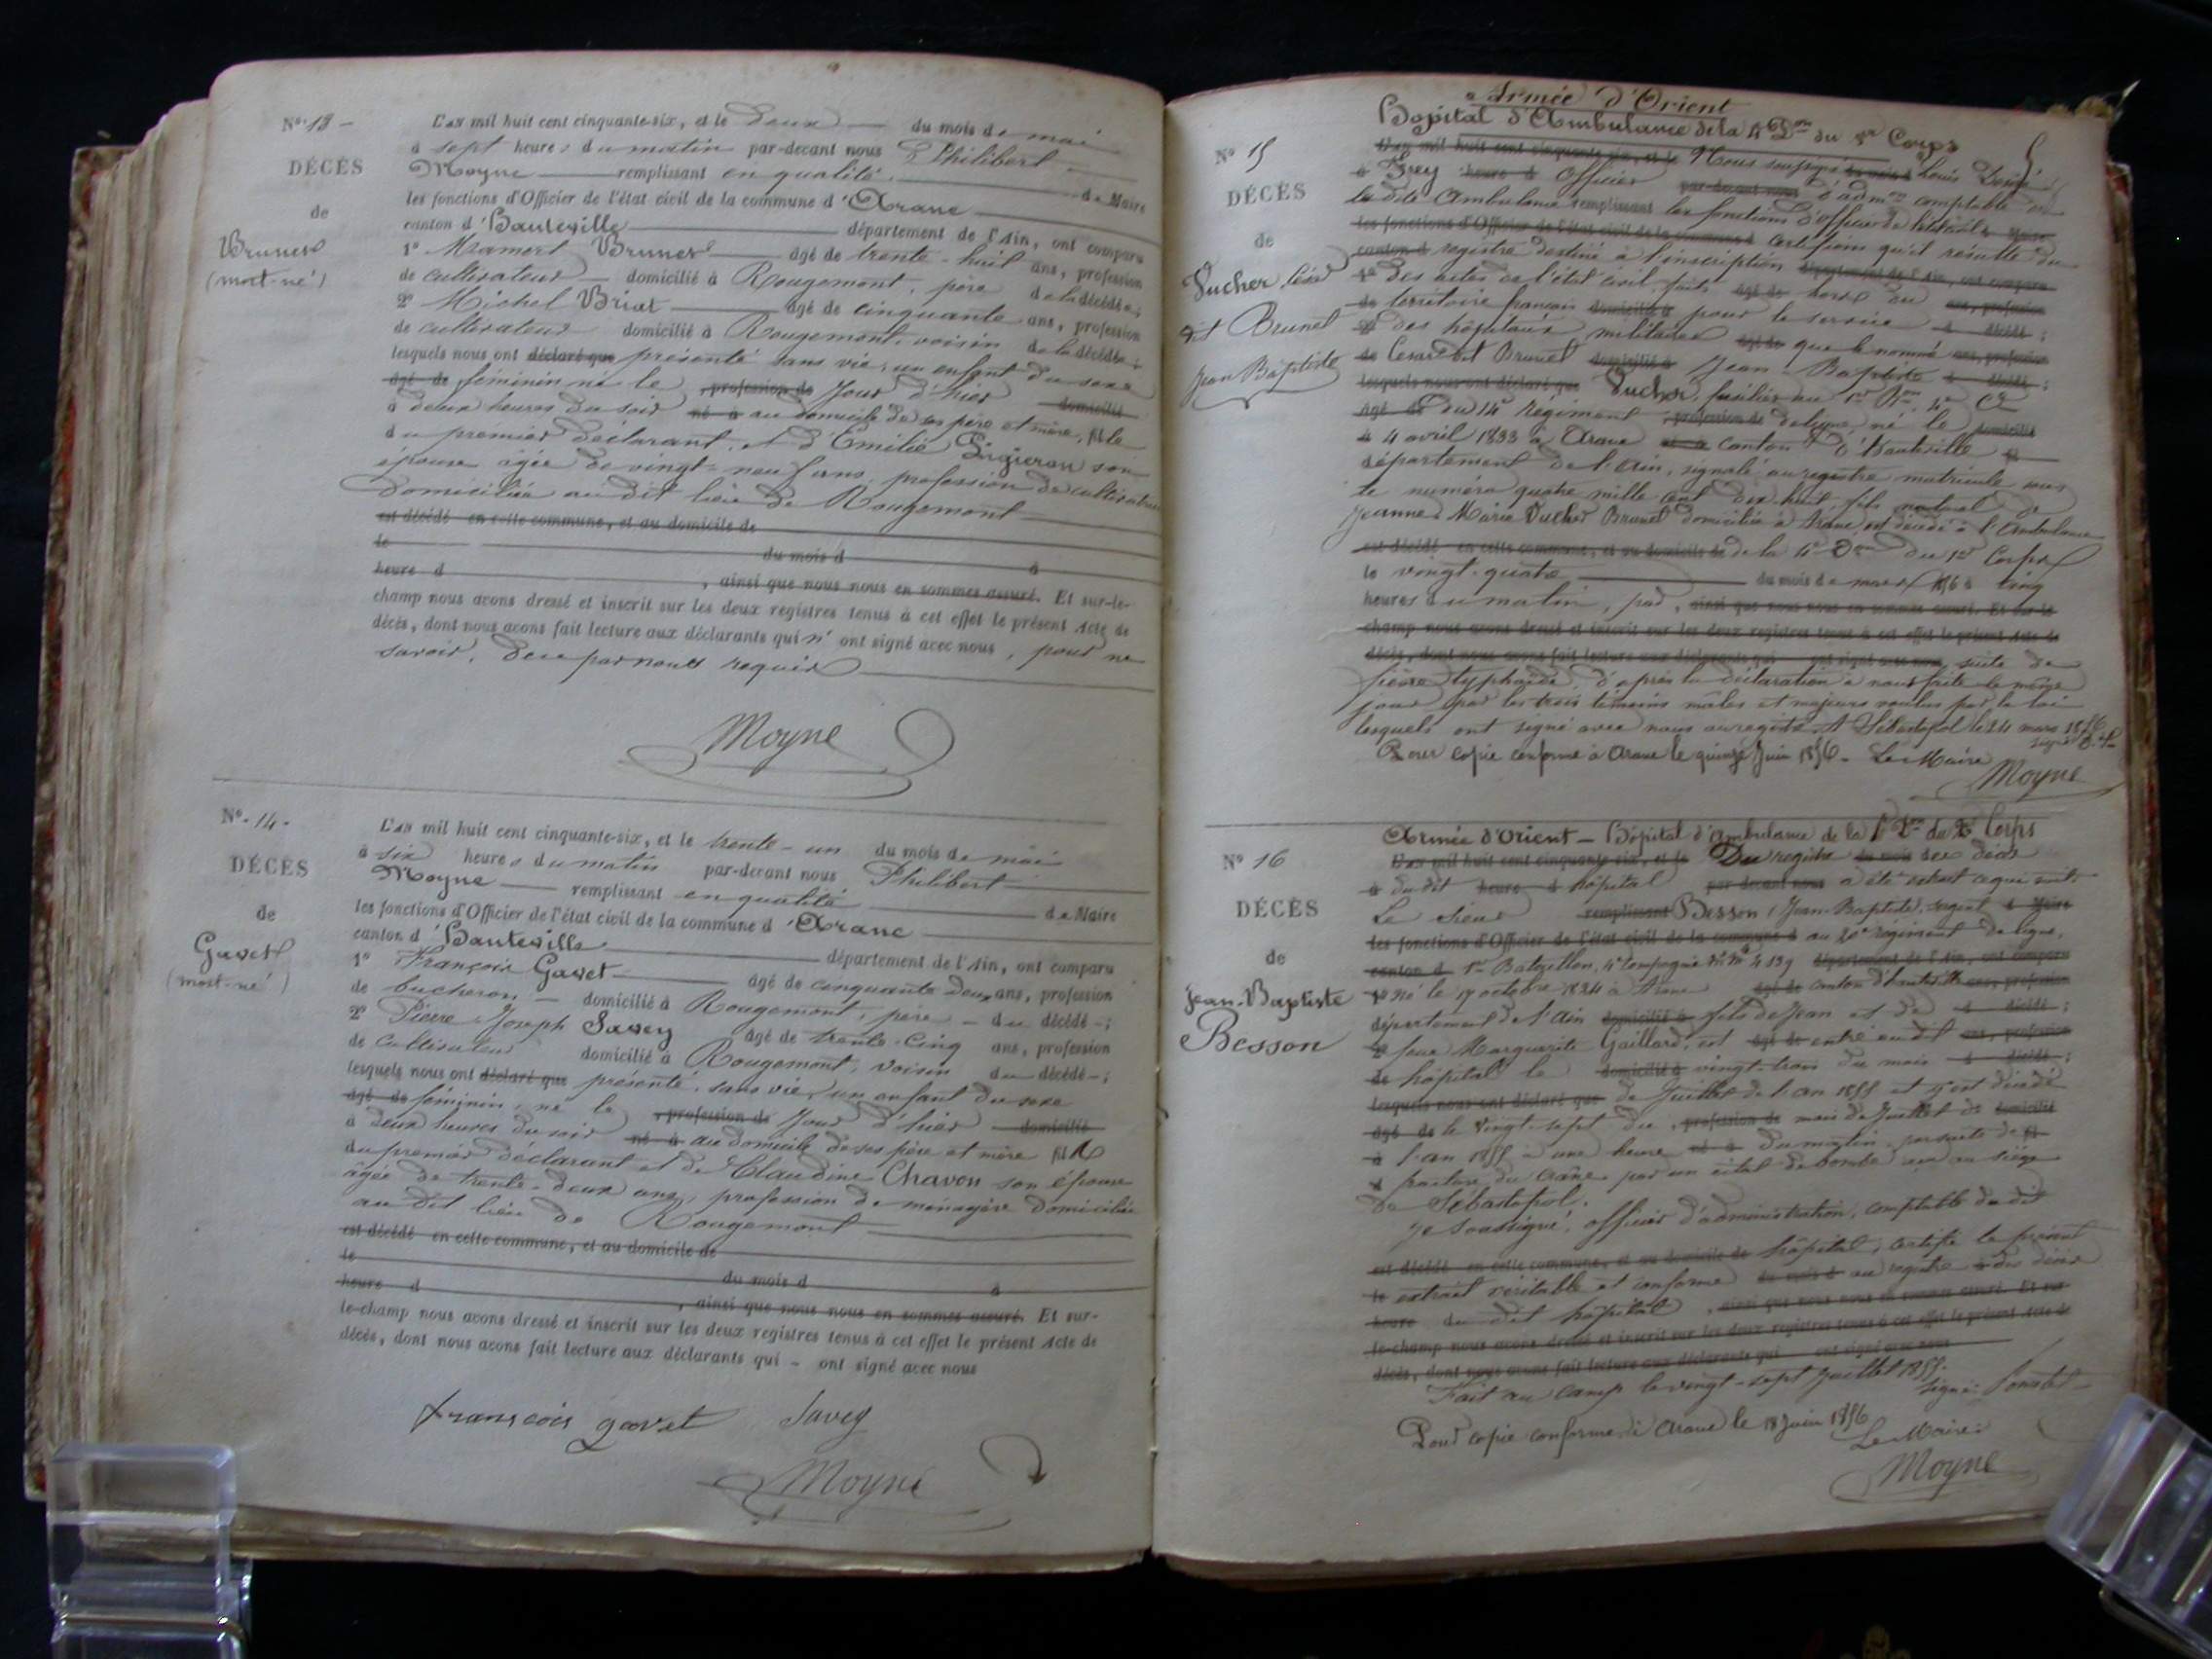 No. 13 -
DÉCÈS
de
Brunet
(mort-né)
L'an mil huit cent cinquante-six, et le deux du mois de mai
à sept heures du matin par-devant nous Philibert
Moyne remplissant en qualité de Maire
les fonctions d'Officier de l'état civil de la commune d'Aranc
canton d'Hauteville département de l'Ain, ont comparu
1º Mramert Brunet âgé de trente-huit ans, profession
de cultivateur domicilié à Rougemont, père de la décédée;
2º Michel Briat âgé de cinquante ans, profession
de cultivateur domicilié à Rougemont, voisin de la décédée;
lesquels nous ont déclaré que présenté sans vie, un enfant du sexe
âgé de féminin né le profession de jour d'hier domicilié
à deux heures du soir né à au domicile de ses père et mère, fille
du premier déclarant et d'Emilie son
épouse âgée de vingt-neuf ans, profession de cultivatrice
domiciliée au dit lieu de Rougemont
est décédé en cette commune, et au domicile de
le du mois d à
heure d , ainsi que nous nous en sommes assuré. Et sur-le-
champ nous avons dressé et inscrit sur les deux registres tenus à cet effet le présent Acte de
décès, dont nous avons fait lecture aux déclarants qui n'ont signé avec nous, pour ne
savoir, de ce par nous requis
Moyne
No. 14.
DÉCÈS
de
Gavet
(mort-né)
L'an mil huit cent cinquante-six, et le trente-un du mois de mai
à six heures du matin par-devant nous Philibert
Moyne remplissant en qualité de Maire
les fonctions d'Officier de l'état civil de la commune d'Aranc
canton d'Hauteville département de l'Ain, ont comparu
1º François Gavet âgé de cinquante deux ans, profession
de bucheron domicilié à Rougemont, père du décédé;
2º Pierre Joseph Savey âgé de trente-cinq ans, profession
de cultivateur domicilié à Rougemont, voisin du décédé;
lesquels nous ont déclaré que présenté, sans vie, un enfant du sexe
âgé de féminin, né le profession de jour d'hier domicilié
à deux heures du soir né à au domicile de ses père et mère fille
du premier déclarant et de Claudine Chavon son épouse
âgée de trente-deux ans, profession de ménagère domiciliée
au dit lieu de Rougemont
est décédé en cette commune, et au domicile de
le du mois d à
heure d , ainsi que nous nous en sommes assuré. Et sur-
le-champ nous avons dressé et inscrit sur les deux registres tenus à cet effet le présent Acte de
décès, dont nous avons fait lecture aux déclarants qui - ont signé avec nous
françois gavet Savey
Moyne
Armée d'Orient
Hôpital d'Ambulance de la 4e Don du 1er Corps
No 15
DÉCÈS
de
Vucher César
dit Brunet
Jean Baptiste
L'an mil huit cent cinquante-six, et le Nous soussigné du mois d Louis
à Frey heure d Officier par-devant nous d'admon comptable de
la dite Ambulance remplissant les fonctions d'officier de l'état civil de Maire
les fonctions d'Officier de l'état civil de la commune d certifions qu'il résulte du
canton d registre destiné à l'inscription département de l'Ain, ont comparu
1º des actes de l'état civil faits âgé de hors du ans, profession
de territoire français domicilié à pour le service d décédé;
2º des hôpitaux militaires âgé de que le nommé ans, profession
de César dit Brunet domicilié à Jean Baptiste d décédé;
lesquels nous ont déclaré que Vucher, fusilier au 1er Bon 4e Cie
âgé de du 14e régiment profession de de ligne, né le domicilié
à 4 avril 1833 à Aranc né à canton d'Hauteville fil
département de l'Ain, signalé au registre matricule sous
le numéro quatre mille cent dix-huit, fils naturel de
Jeanne Marie Vucher Brunet domiciliée à Aranc est décédé à l'Ambulance
est décédé en cette commune, et au domicile de de la 4e Don du 1er Corps
le vingt-quatre du mois de mars 1856 à cinq
heures du matin, par, ainsi que nous nous en sommes assuré. Et sur-le-
champ nous avons dressé et inscrit sur les deux registres tenus à cet effet le présent Acte de
décès, dont nous avons fait lecture aux déclarants qui ont signé avec nous suite de
fièvre typhoïde d'après la déclaration à nous faite le même
jour par les trois témoins mâles et majeurs voulus par la loi
lesquels ont signé avec nous au registre. A Sébastopol le 24 mars 1856
Pour copie conforme à Aranc le quinze Juin 1856. Le Maire
Moyne
Armée d'Orient - Hôpital d'Ambulance de la 1e Don du 2e Corps
No 16
DÉCÈS
de
Jean-Baptiste
Besson
L'an mil huit cent cinquante-six, et le Du registre du mois des décès
à du dit heure d hôpital par-devant nous a été extrait ce qui suit.
Le sieur remplissant Besson (Jean-Baptiste), sergent de Maire
les fonctions d'Officier de l'état civil de la commune d au 20e régiment de ligne,
canton d 1er Bataillon, 4e Compagnie No Me 4139 département de l'Ain, ont comparu
1º né le 17 octobre 1834 à Aranc âgé de canton d'Hauteville ans, profession
département de l'Ain domicilié à fils de Jean et de d décédé;
2º feue Marguerite Gaillard, est âgé de entré au dit ans, profession
de hôpital le domicilié à vingt-trois du mois d décédé;
lesquels nous ont déclaré que de Juillet de l'an 1855 et y est décédé
âgé de le vingt-sept du profession de mois de Juillet de domicilié
à l'an 1855 à une heure né à du matin, par suite de fil
d fracture du crâne par un éclat de bombe reçu au siège
de Sébastopol.
Je soussigné, officier d'administration, comptable du dit
est décédé en cette commune, et au domicile de hôpital, certifie le présent
le extrait véritable et conforme du mois d au registre à des décès
heure du dit hôpital, ainsi que nous nous en sommes assuré. Et sur-
le-champ nous avons dressé et inscrit sur les deux registres tenus à cet effet le présent Acte de
décès, dont nous avons fait lecture aux déclarants qui ont signé avec nous
Fait au camp le vingt-sept Juillet 1855.
Signé:
Pour copie conforme, à Aranc le 18 Juin 1856
Le Maire:
Moyne